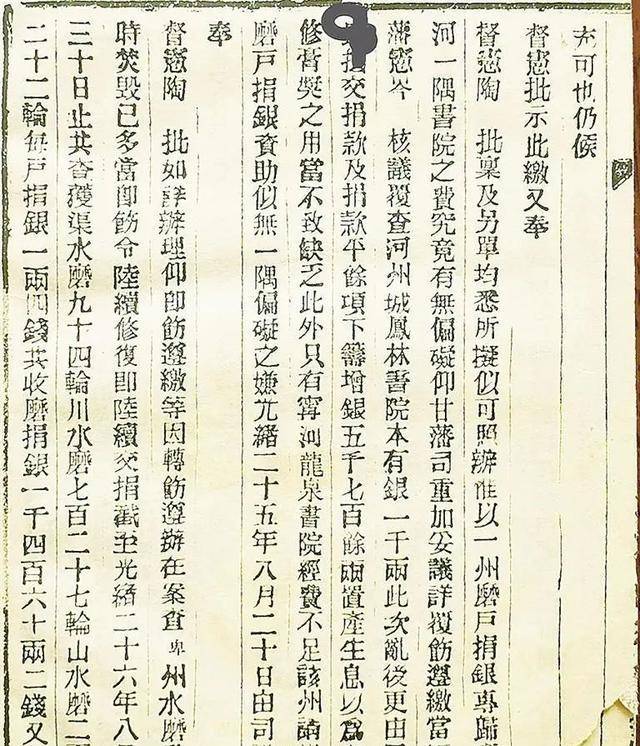 充可也仍候
督憲批示此繳又奉
督憲陶　批稟及另單均悉所擬似可照辦惟以一州磨戶捐銀專歸
河一隅書院之費究竟有無偏礙仰甘藩司重加妥議詳覆飭遵繳當
藩憲岑　核議覆查河州城鳳林書院本有銀一千兩此次亂後更由
捐交捐款及捐款平餘項下籌增銀五千七百餘兩置產生息以爲
修膏奬之用當不致缺乏此外只有寧河龍泉書院經費不足該州諭
磨戶捐銀資助似無一隅偏礙之嫌光緒二十五年八月二十日由司
奉
督憲陶　批如詳辦理仰卽飭遵繳等因轉飭遵辦在案查卑州水磨
時焚毀已多當卽飭令陸續修復卽陸續交捐截至光緒二十六年八
三十日止共查獲渠水磨九十四輪川水磨七百二十七輪山水磨二
二十二輪每戶捐銀一兩四錢共收磨捐銀一千四百六十兩二錢又